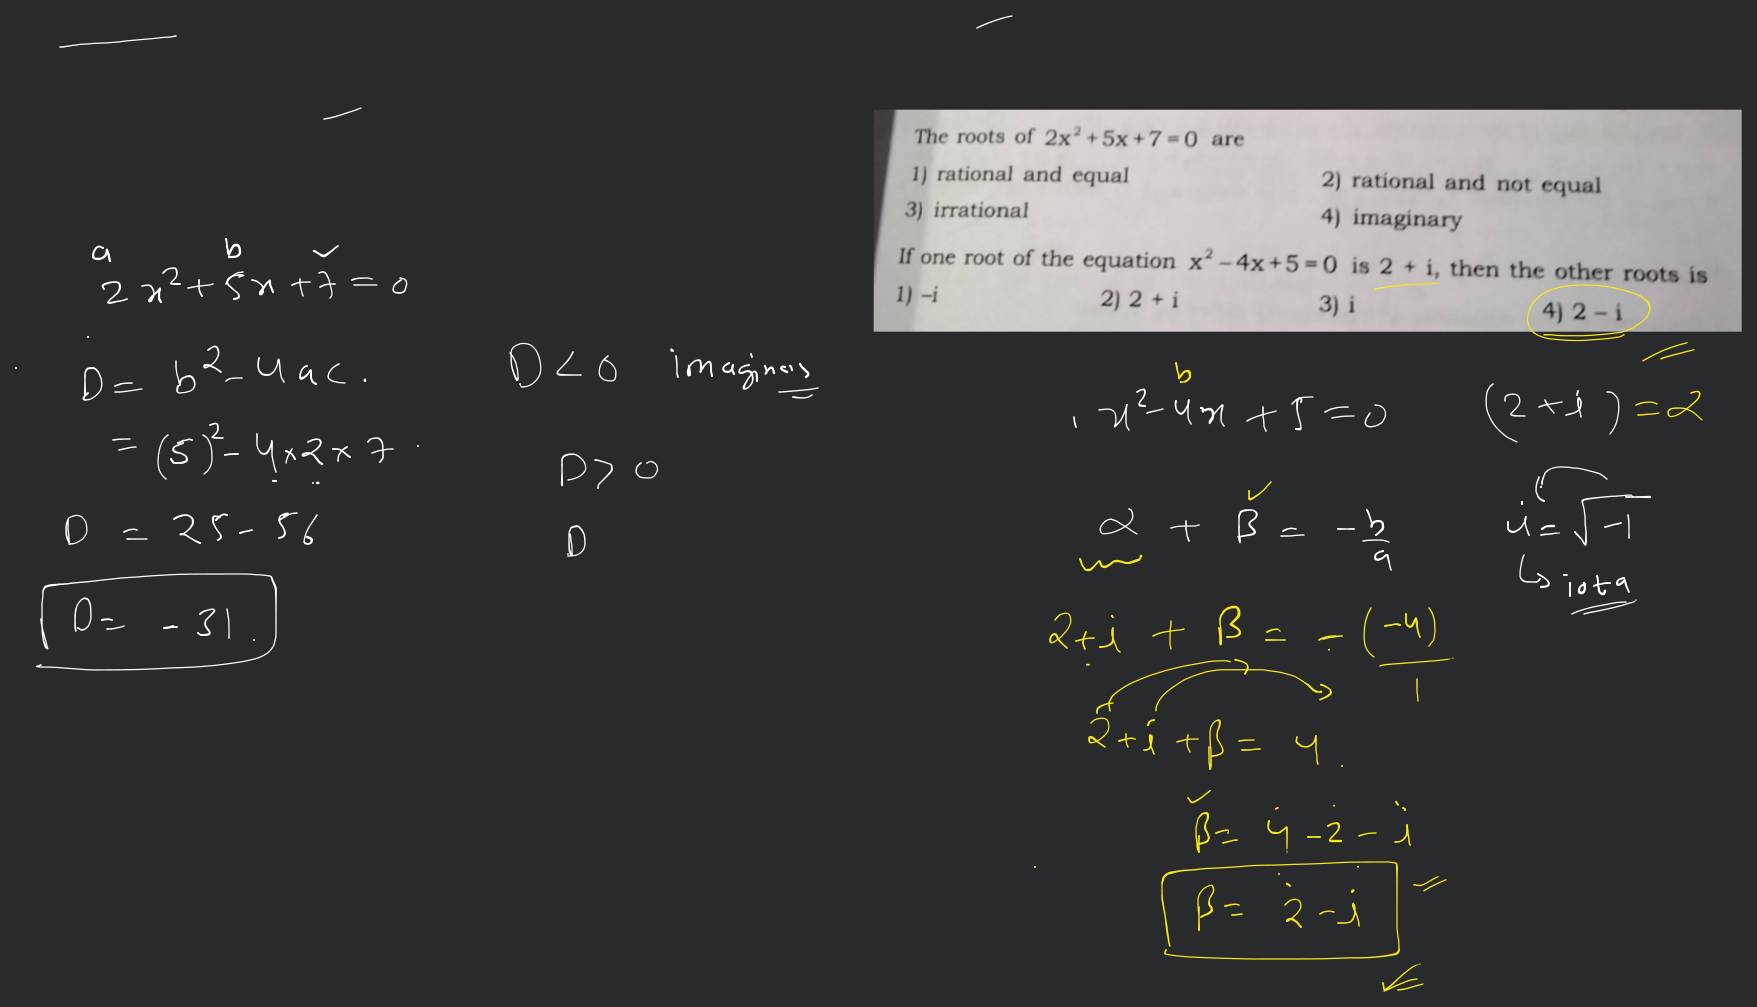 The roots of 2x² + 5x + 7 = 0 are
1) rational and equal 2) rational and not equal
3) irrational 4) imaginary
If one root of the equation x² – 4x + 5 = 0 is 2 + i, then the other roots is
1) –i 2) 2 + i 3) i 4) 2 – i
a b
2x² + 5x + 7 = 0
D = b² - 4ac.
= (5)² - 4×2×7
D = 25 - 56
D = -31.
D < 0
D > 0
D
b
1 x² - 4x + 5 = 0 (2 + i) = α
α + β = -b/a
i = √-1
↳ iota
2 + i + β = -(-4)/1
2 + i + β = 4.
β = 4 - 2 - i
β = 2 - i